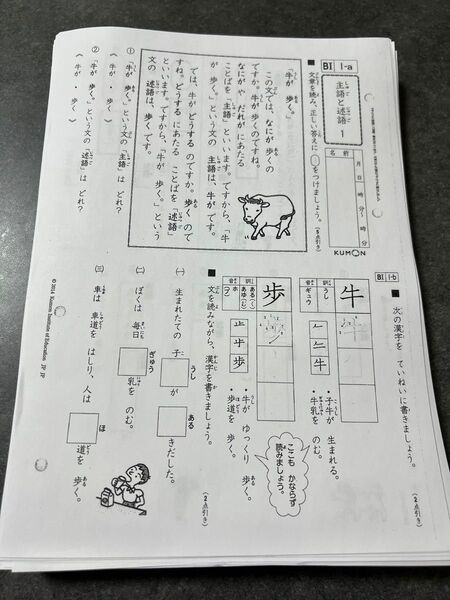 BI 1-a
主語と述語1
名前
月 日 時 分 時 分
KUMON
■ 文章を読み、正しい答えに ○をつけましょう。(5点引き)
「牛が 歩く。」
この文では、なにが 歩くの
ですか。牛が 歩くのですね。
なにが や だれが にあたる
ことばを 「主語」 といいます。ですから、「牛
が 歩く。」 という文の 主語は、牛が です。
では、牛が どうする のですか。歩く ので
すね。どうする にあたる ことばを 「述語」
といいます。ですから、「牛が 歩く。」 という
文の 述語は、歩く です。
① 「牛が 歩く。」 という文の 「主語」 は どれ?
( 牛が ・ 歩く )
② 「牛が 歩く。」 という文の 「述語」 は どれ?
( 牛が ・ 歩く )
BI 1-b
■ 次の漢字を ていねいに書きましょう。(2点引き)
牛
音 ギュウ
訓 うし
・子牛が 生まれる。
・牛乳を のむ。
歩
音 ホ (フ)
訓 ある(く) あゆ(む)
・牛が ゆっくり 歩く。
・歩道を 歩く。
ここも かならず
読みましょう。
■ 文を読みながら、漢字を書きましょう。(2点引き)
(一) 生まれたての 子□が □きだした。
(二) ぼくは 毎日 □乳を のむ。
(三) 車は 車道を はしり、人は □道を 歩く。
© 2014 Kumon Institute of Education JP JP